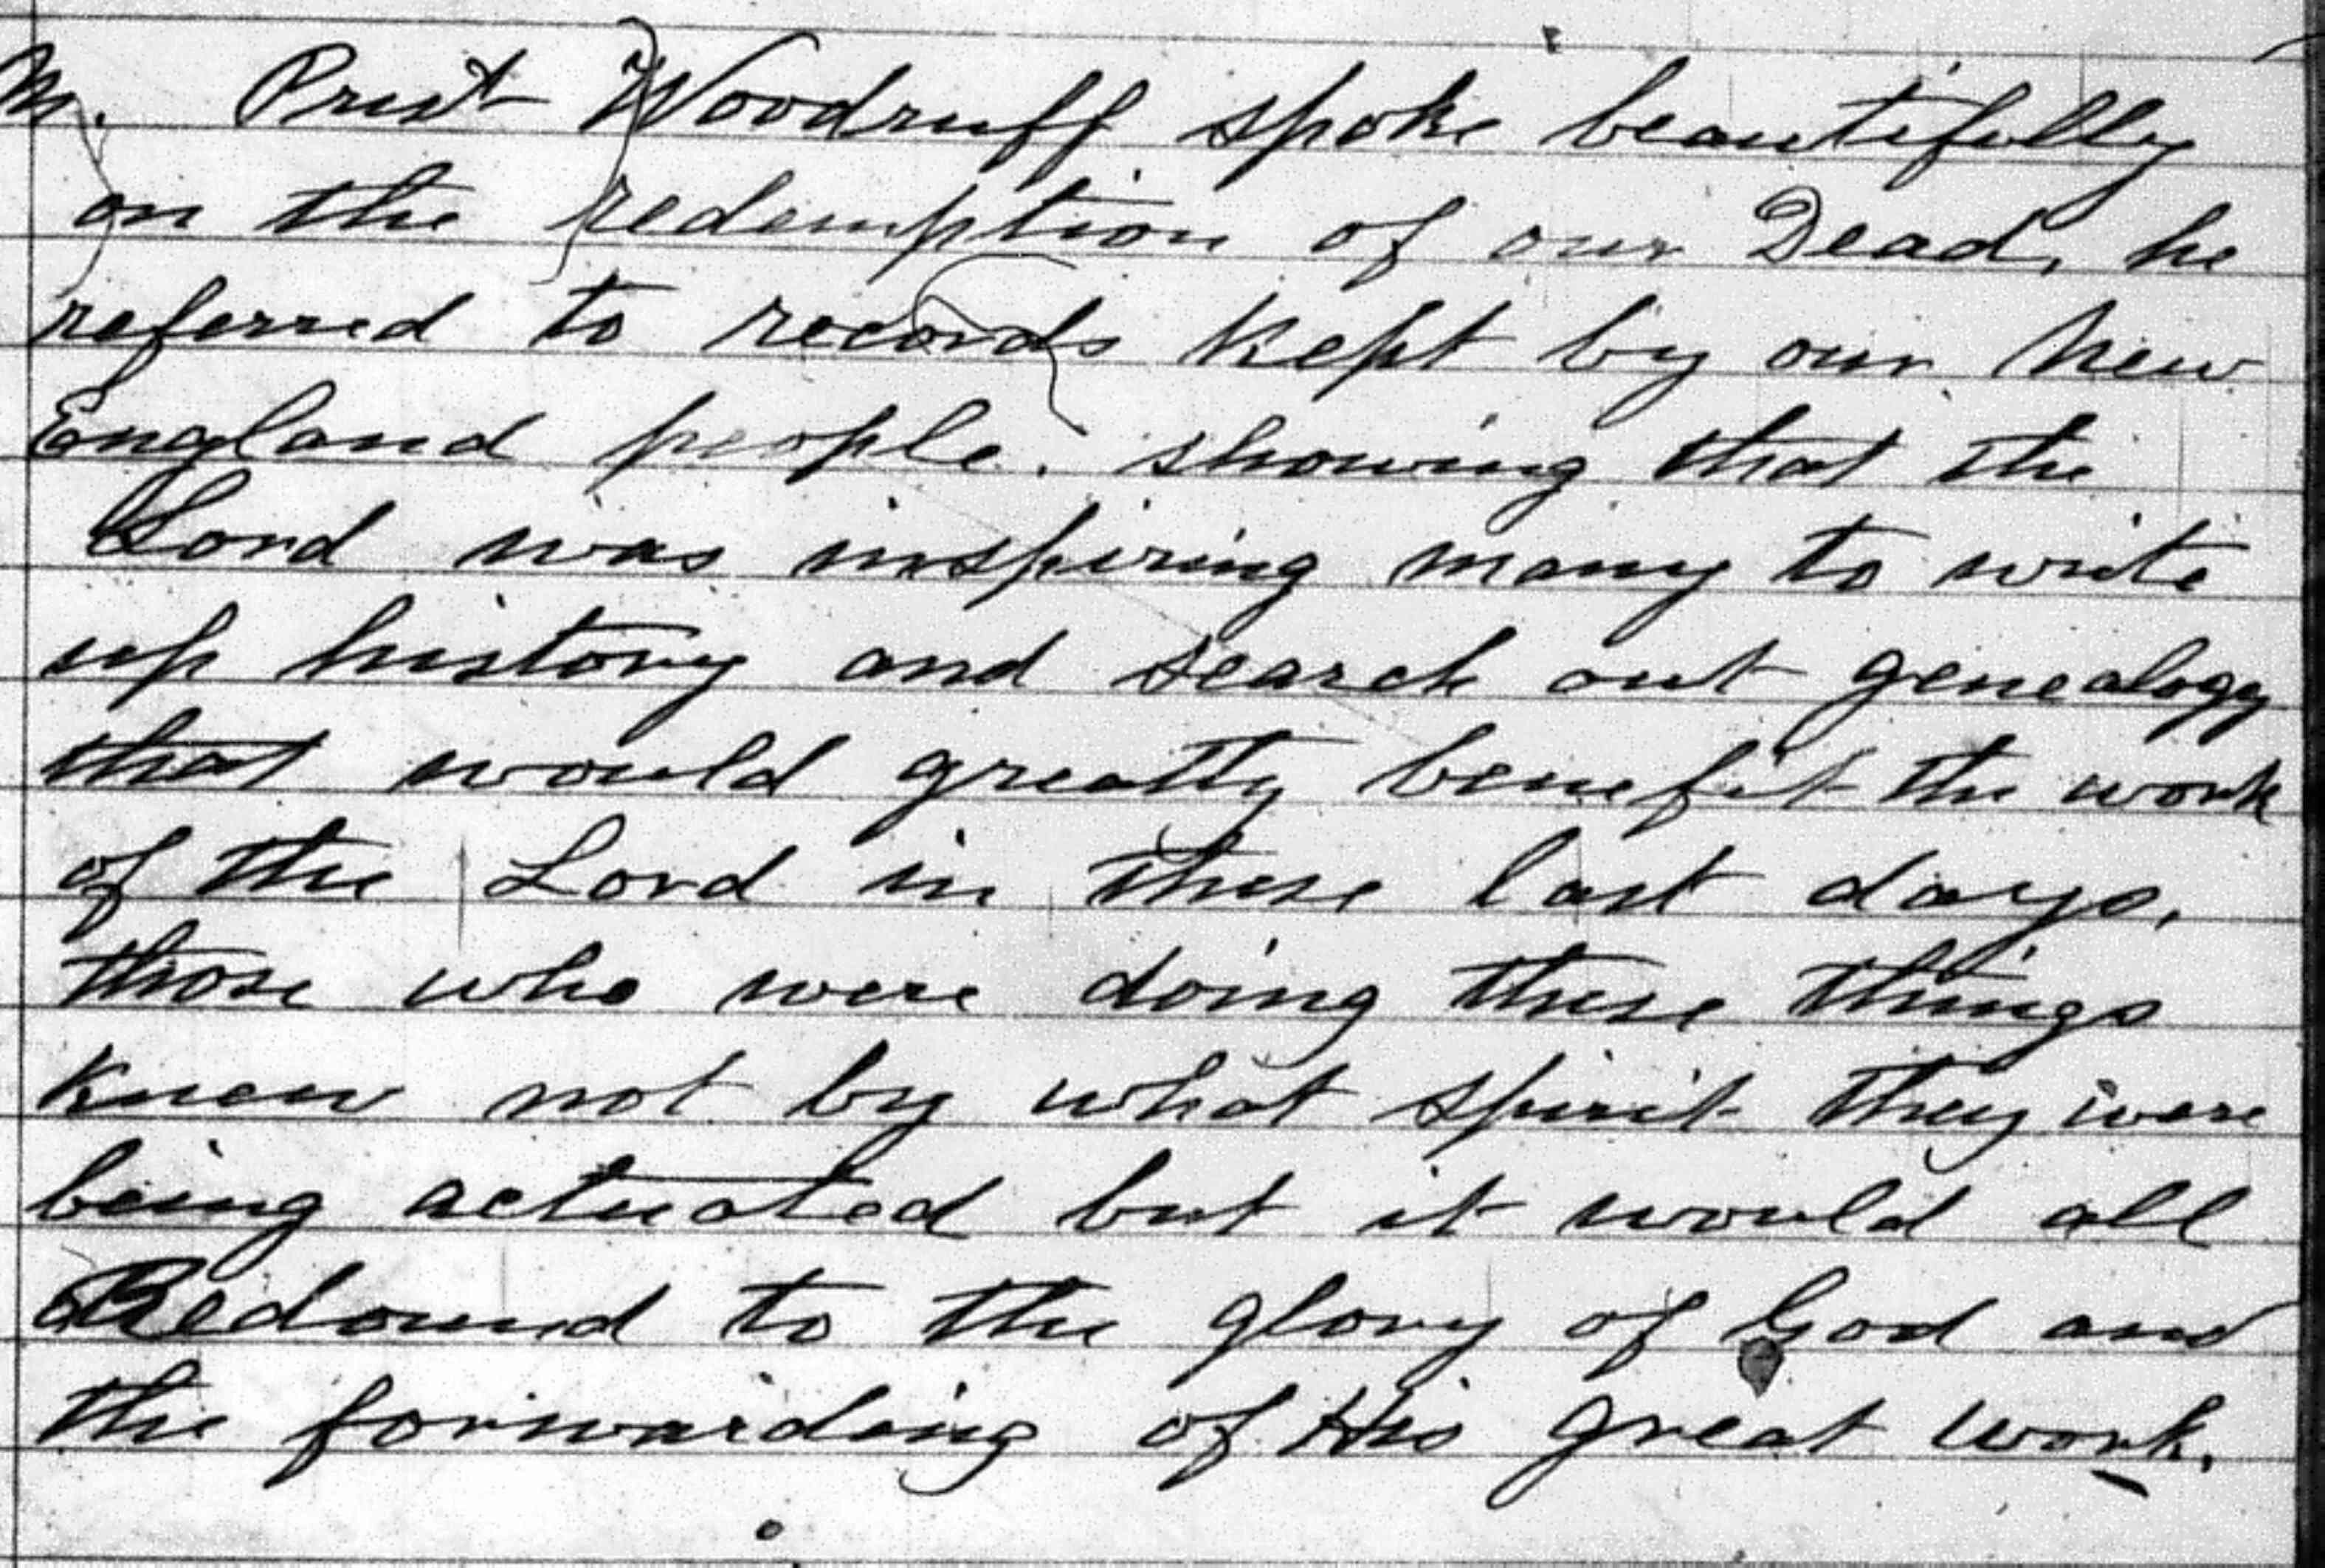 M. Prest Woodruff spoke beautifully
on the redemption of our Dead, he
referred to records kept by our New
England people. showing that the
Lord was inspiring many to write
up history and search out genealogy
that would greatly benefit the work
of the Lord in these last days,
those who were doing these things
knew not by what spirit they were
being actuated but it would all
Redound to the glory of God and
the forwarding of His great work.